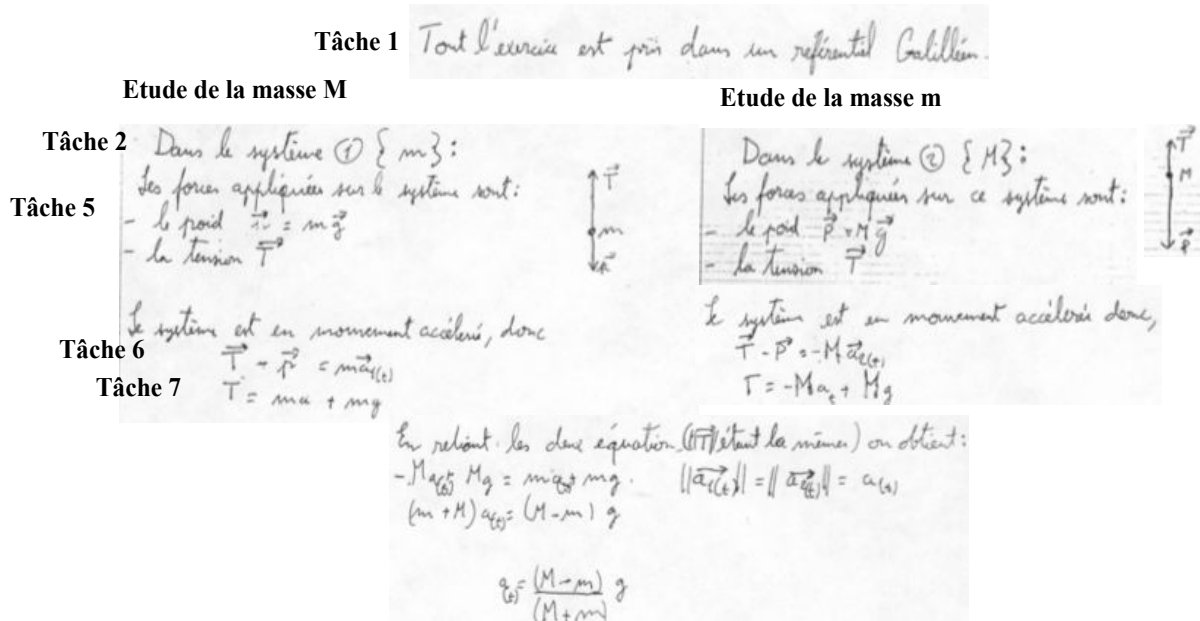 Tâche 1 Tout l'exercice est pris dans un référentiel Galilléen.
Etude de la masse M
Tâche 2 Dans le système ① { m} :
Tâche 5 Les forces appliquées sur le système sont :
- le poid p⃗ = m g⃗
- la tension T⃗
T⃗
m
p⃗
Le système est en mouvement accéléré, donc
Tâche 6 T⃗ - p⃗ = m a⃗₁(t)
Tâche 7 T = ma + mg
Etude de la masse m
Dans le système ② { M} :
Les forces appliquées sur ce système sont :
- le poid P⃗ = M g⃗
- la tension T⃗
T⃗
M
P⃗
Le système est en mouvement accéléré donc,
T⃗ - P⃗ = -M a⃗₂(t)
T = -Ma + Mg
En reliant les deux équation (||T⃗|| étant la mêmes) on obtient :
-Ma(t) + Mg = ma(t) + mg. ||a⃗₁(t)|| = ||a⃗₂(t)|| = a(t)
(m + M) a(t) = (M - m) g
a(t) = (M - m) / (M + m) g